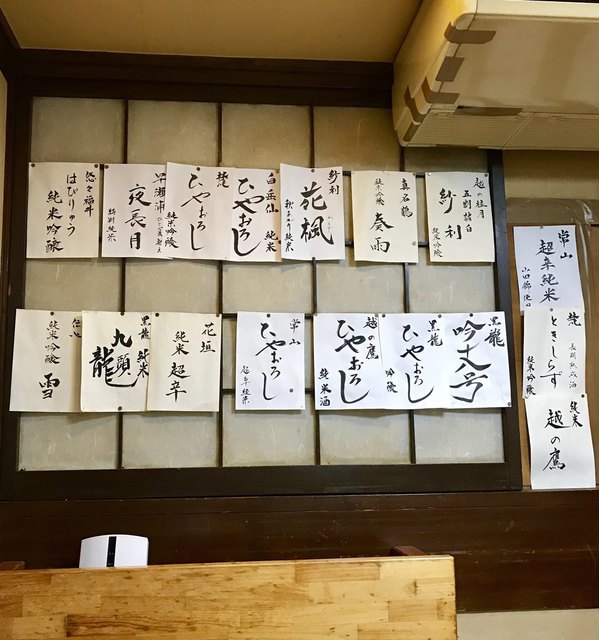 越の桂月
五割諸白
紗利
純米吟醸
真名鶴
純米吟醸
奏雨
紗利
花楓
秋あがり純米
白岳仙
純米
ひやおろし
梵
ひやおろし
早瀬浦
純米吟醸
夜長月
特別純米
悠々福井
はぴりゅう
純米吟醸
黒龍
吟十八号
黒龍
ひやおろし
吟醸
越の鷹
ひやおろし
純米酒
常山
ひやおろし
超辛純米
花垣
純米超辛
黒龍
純米
九頭龍
純米吟醸
雪
常山
超辛純米
梵
ときしらず
長期熟成酒
純米吟醸
純米
越の鷹